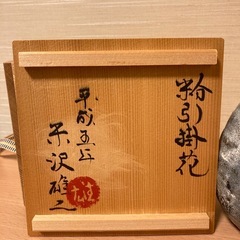 粉引掛花
平成五年
米沢雄之